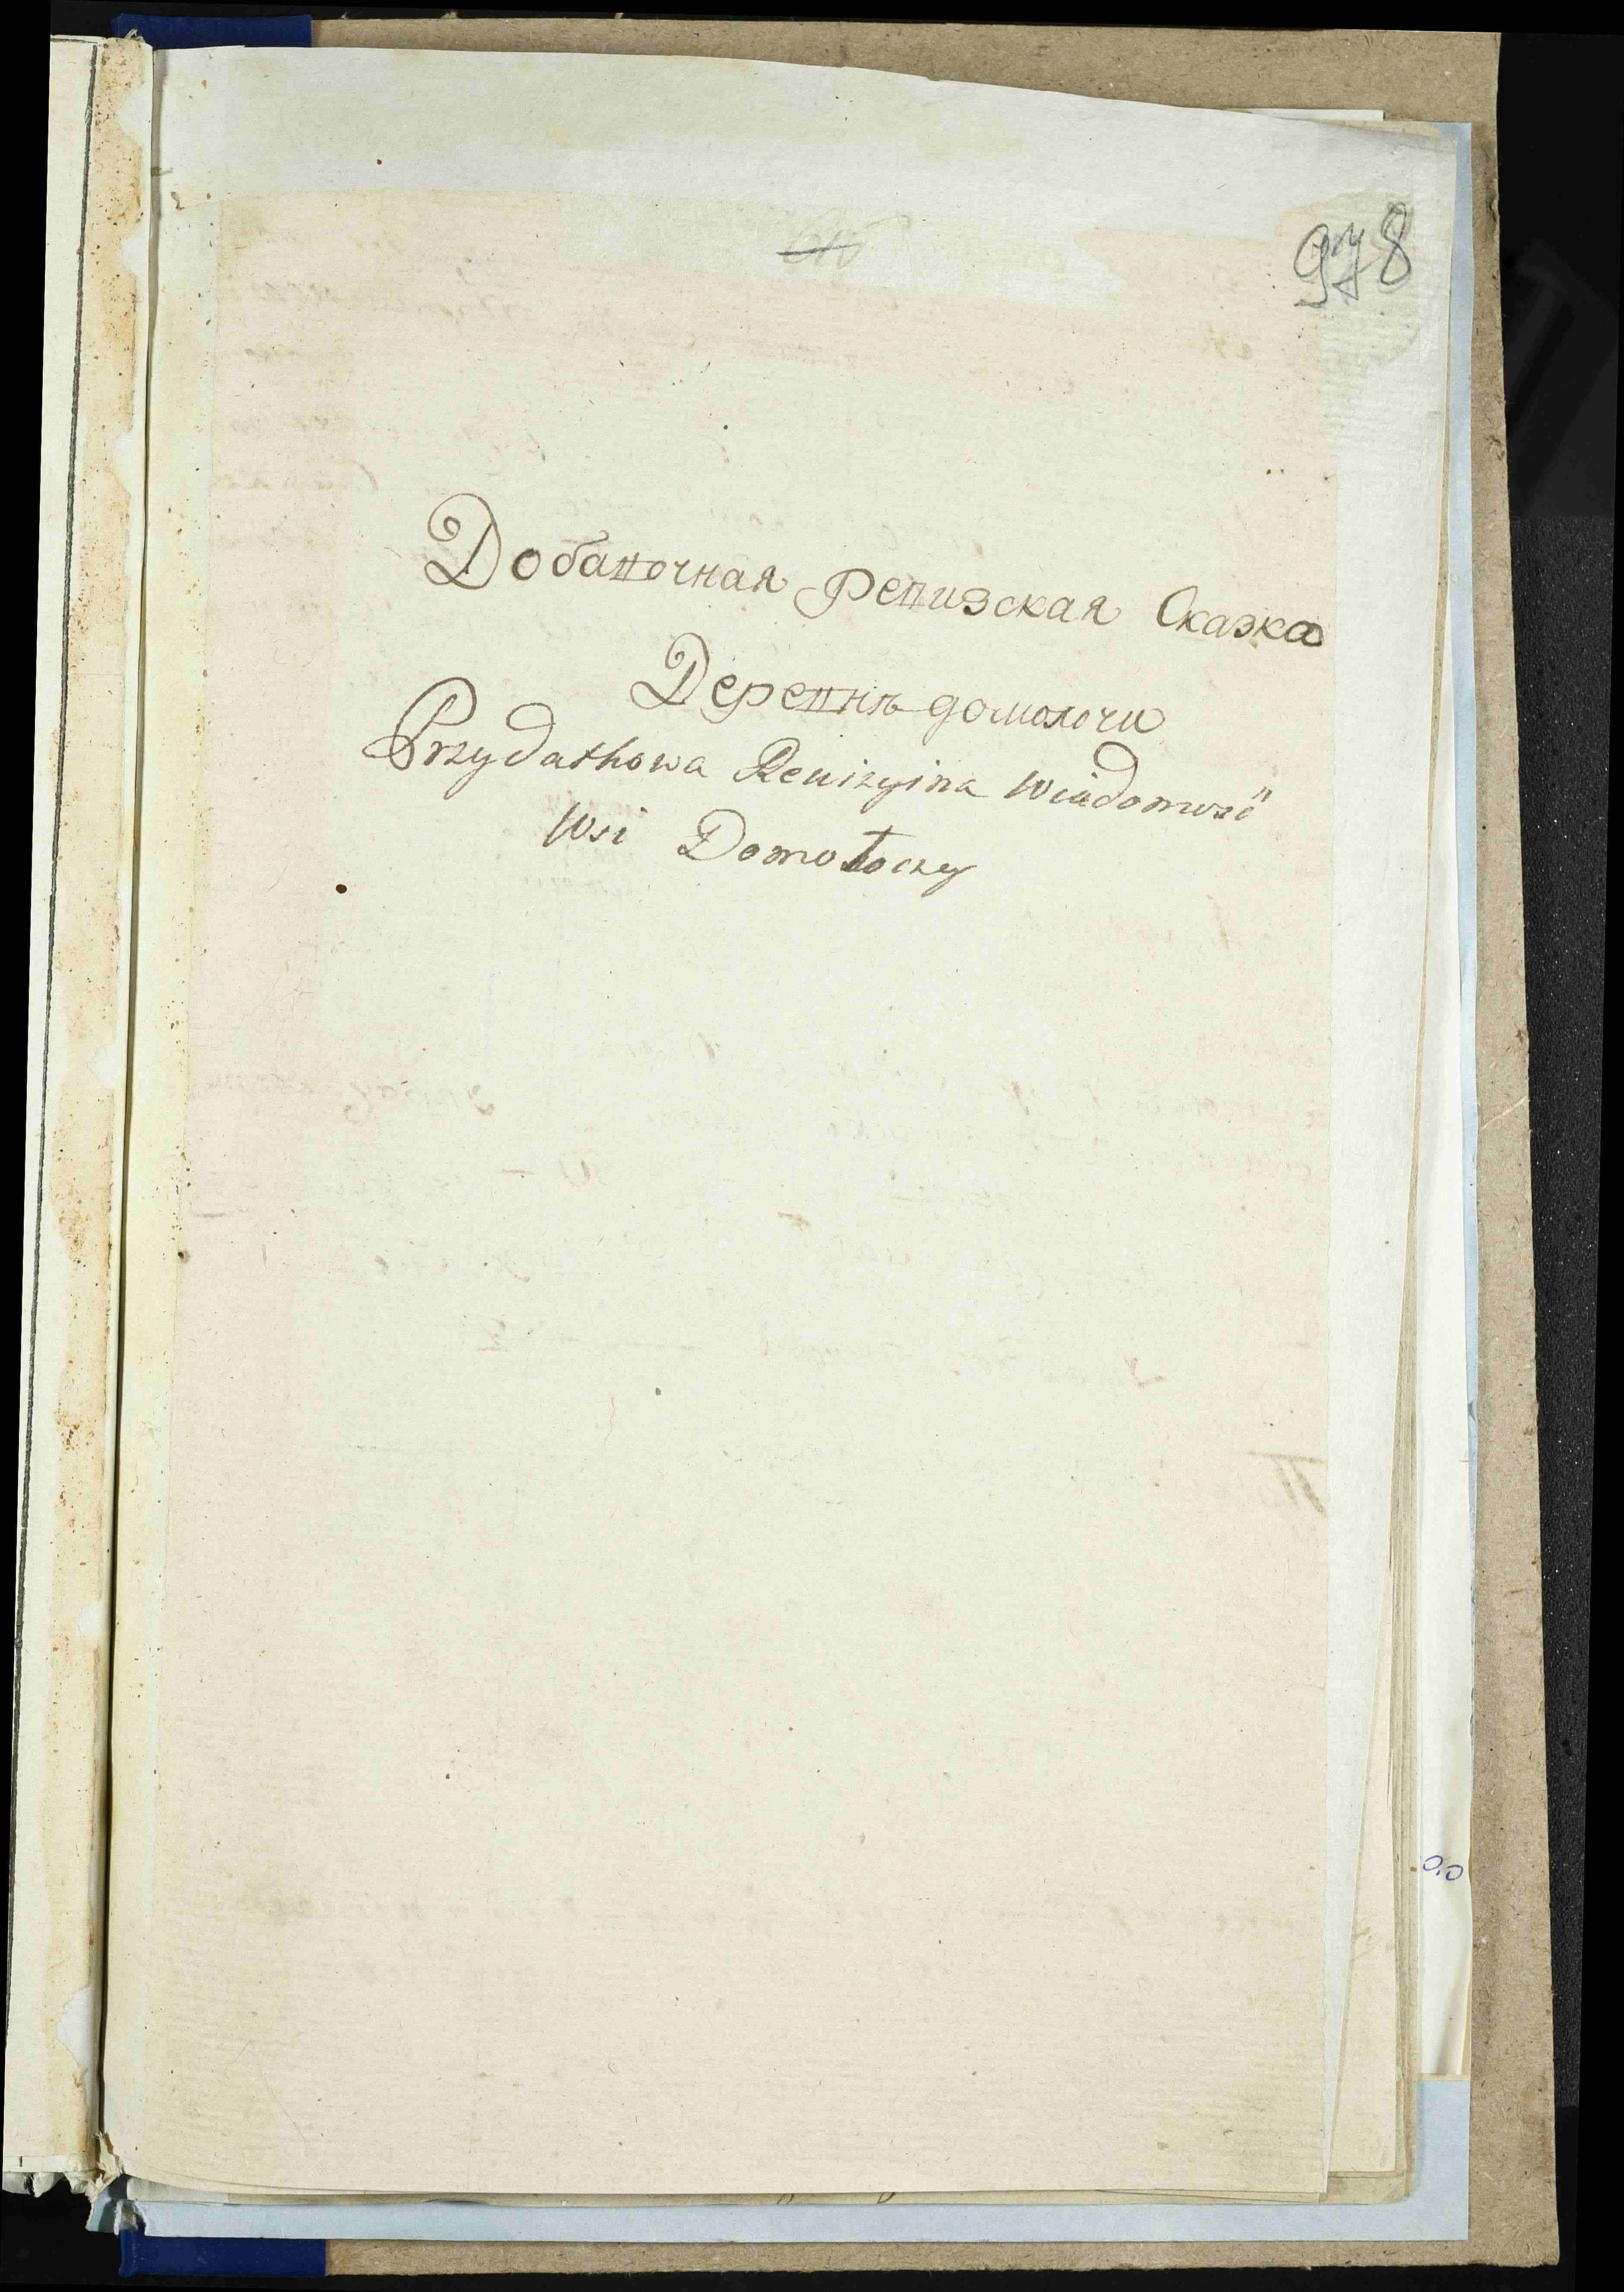 978
Добавочная Ревизская Сказка
Деревнѣ домолочи
Przydatkowa Rewizyina Wiadomość
Wsi Domołoczy